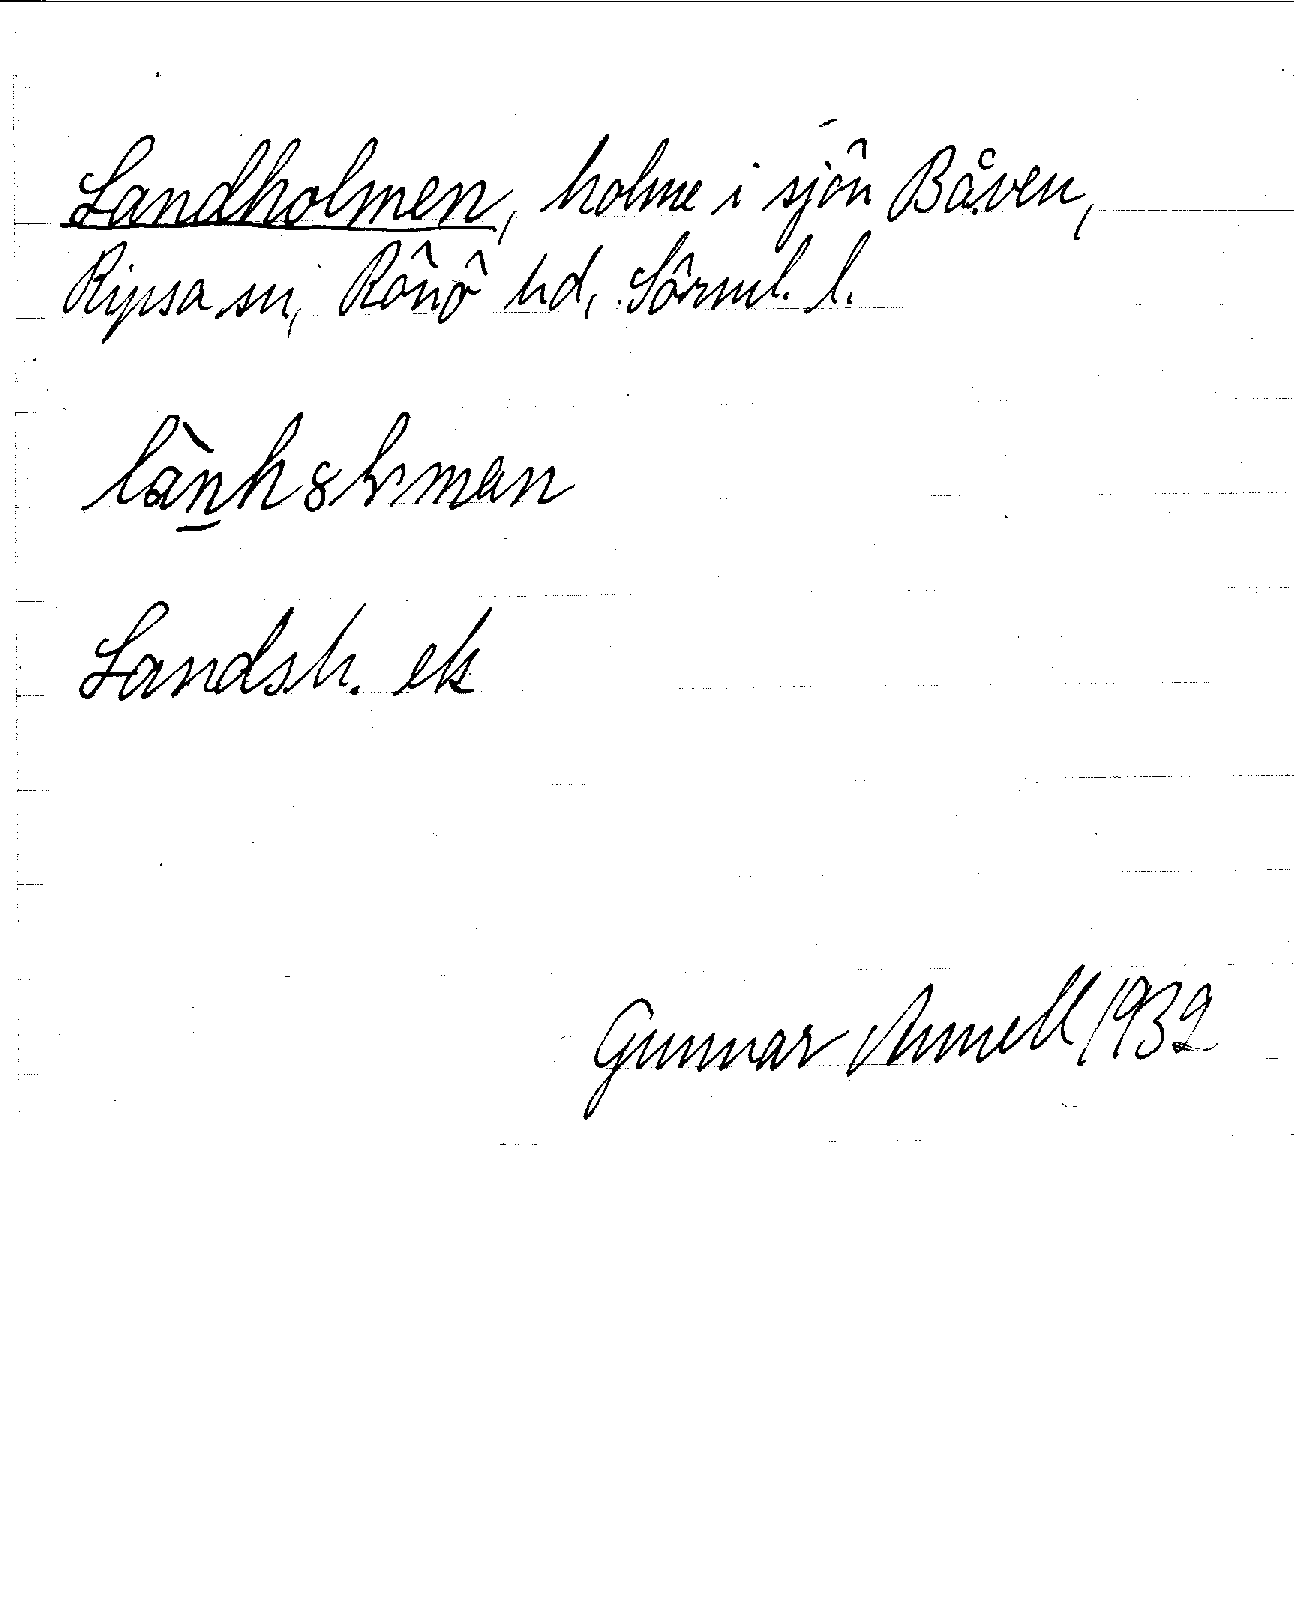 Landholmen, holme i sjön Båven,
Ripsa sn, Rönö hd, Sörml. l.
Landsh. ek
Gunnar Amnell 1932